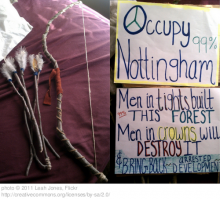 Occupy
99%
Nottingham
Men in tights built
THIS FOREST
Men in crowns will
DESTROY IT
& BRING BACK
ARRESTED
DEVELOPMENT
photo © 2011 Leah Jones, Flickr
http://creativecommons.org/licenses/by-sa/2.0/